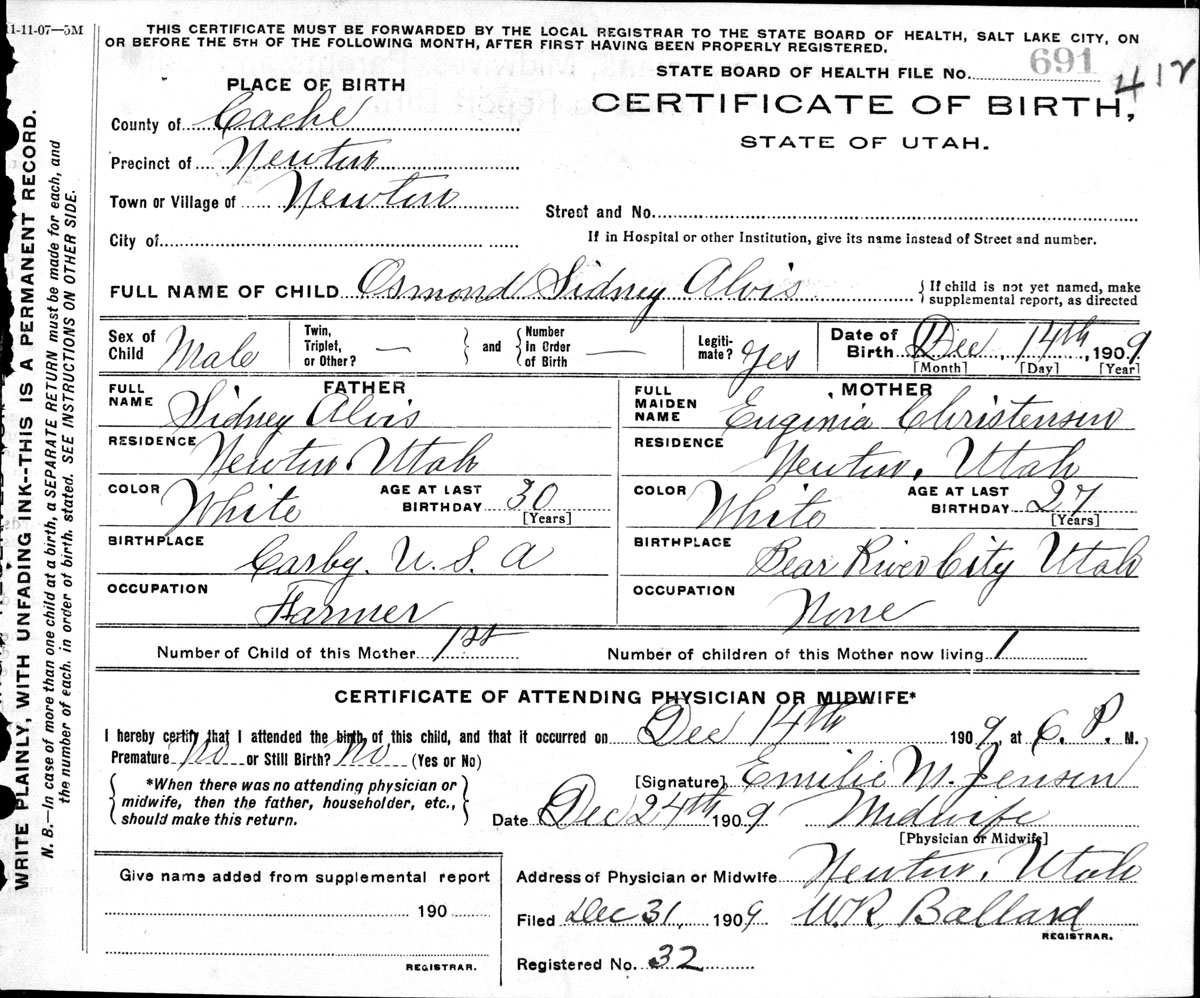 11-11-07—5M
THIS CERTIFICATE MUST BE FORWARDED BY THE LOCAL REGISTRAR TO THE STATE BOARD OF HEALTH, SALT LAKE CITY, ON
OR BEFORE THE 5TH OF THE FOLLOWING MONTH, AFTER FIRST HAVING BEEN PROPERLY REGISTERED.
STATE BOARD OF HEALTH FILE No. 691
412
PLACE OF BIRTH
CERTIFICATE OF BIRTH,
STATE OF UTAH.
County of Cache
Precinct of Newton
Town or Village of Newton
Street and No.
City of
If in Hospital or other Institution, give its name instead of Street and number.
FULL NAME OF CHILD Osmond Sidney Alvis { If child is not yet named, make
supplemental report, as directed
Sex of Child Male Twin, Triplet, or Other? — and Number in Order of Birth — Legiti-mate? Yes Date of Birth Dec, 14th, 1909
[Month] [Day] [Year]
FATHER MOTHER
FULL NAME Sidney Alvis FULL MAIDEN NAME Euginia Christensen
RESIDENCE Newton. Utah RESIDENCE Newton, Utah
COLOR White AGE AT LAST BIRTHDAY 30 [Years] COLOR White AGE AT LAST BIRTHDAY 27 [Years]
BIRTHPLACE U. S. A BIRTHPLACE Bear River City Utah
OCCUPATION Farmer OCCUPATION None
Number of Child of this Mother 1st Number of children of this Mother now living 1
CERTIFICATE OF ATTENDING PHYSICIAN OR MIDWIFE*
I hereby certify that I attended the birth of this child, and that it occurred on Dec 14th 1909, at 6. P. M.
Premature No or Still Birth? No (Yes or No)
[Signature] Emilie M. Jensen
{ *When there was no attending physician or
midwife, then the father, householder, etc.,
should make this return. }
Date Dec 24th 1909 Midwife
[Physician or Midwife]
Give name added from supplemental report
190
REGISTRAR.
Address of Physician or Midwife Newton, Utah
Filed Dec 31, 1909 W.R. Ballard
REGISTRAR.
Registered No. 32
WRITE PLAINLY, WITH UNFADING INK--THIS IS A PERMANENT RECORD.
N. B.—In case of more than one child at a birth, a SEPARATE RETURN must be made for each, and
the number of each. in order of birth, stated. SEE INSTRUCTIONS ON OTHER SIDE.